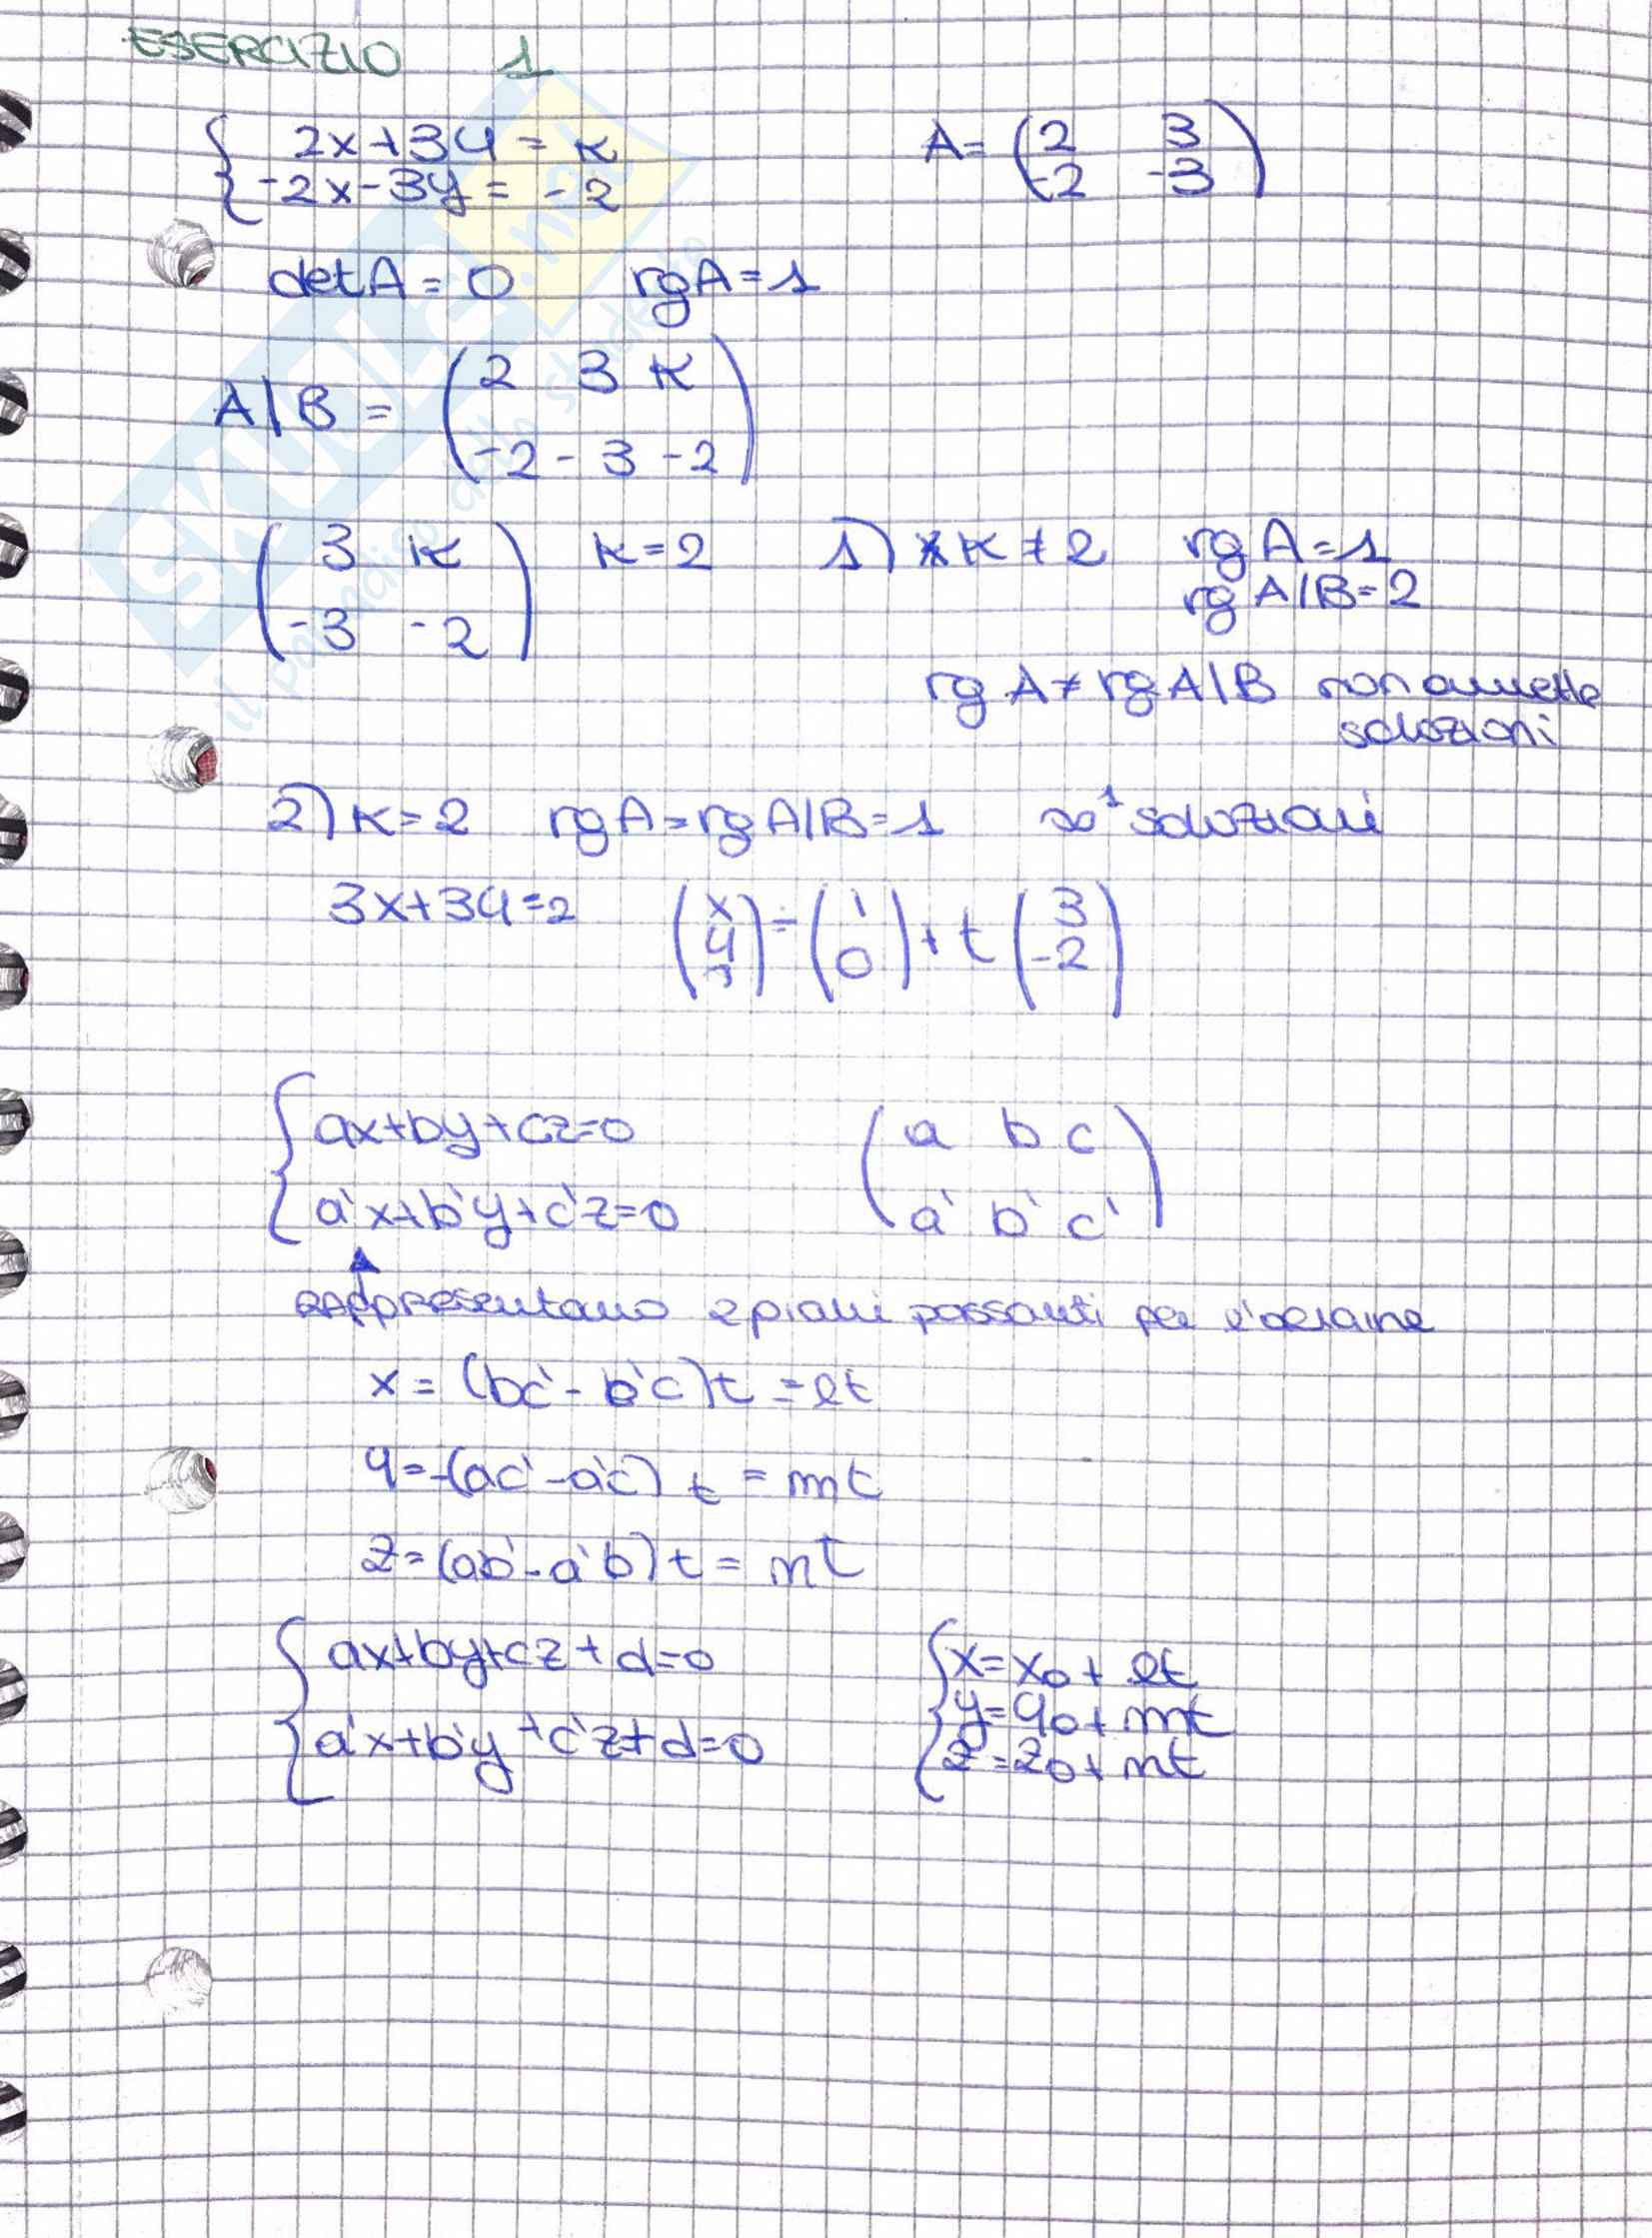 ESERCIZIO 1
2x+3y = k
-2x-3y = -2
A = (2 3
-2 -3)
detA = 0 rgA = 1
A|B = (2 3 k
-2 -3 -2)
(3 k
-3 -2) k=2 1) k≠2 rgA=1
rgA|B=2
rgA≠rgA|B non ammette
soluzioni
2) k=2 rgA=rgA|B=1 ∞¹ soluzioni
3x+3y=2 (x
y) = (1
0) + t (3
-2)
ax+by+cz=0
a'x+b'y+c'z=0
(a b c
a' b' c')
rappresentano 2 piani passanti per l'origine
x = (bc'-b'c)t = lt
y = -(ac'-a'c)t = mt
z = (ab'-a'b)t = nt
ax+by+cz+d=0
a'x+b'y+c'z+d=0
x=x₀+lt
y=y₀+mt
z=z₀+nt
SKUOLA.net
il paradiso dello studente